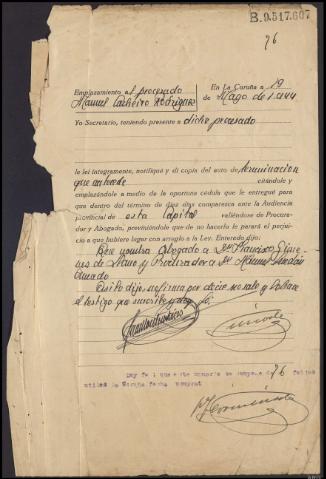 B.9.517.607
76
Emplazamiento al procesado
Manuel Cacheiro Rodriguez
En La Coruña a 19
de Mayo de 1.944
Yo Secretario, teniendo presente a dicho procesado
le leí íntegramente, notifiqué y di copia del auto de terminacion
que antecede citándole y
emplazándole a medio de la oportuna cédula que le entregué para
que dentro del término de diez días comparezca ante la Audiencia
provincial de esta Capital valiéndose de Procura-
dor y Abogado, previniéndole que de no hacerlo le parará el perjui-
cio a que hubiere lugar con arreglo a la Ley. Enterado dijo:
Que nombra Abogado a Don Francisco
de y Procurador a D. Manuel
Amado
Esto dijo, no firma por decir no
el testigo que suscribe y doy fe.
Doy fe: que este sumario se compone de 76 folios
utiles La Coruña fecha